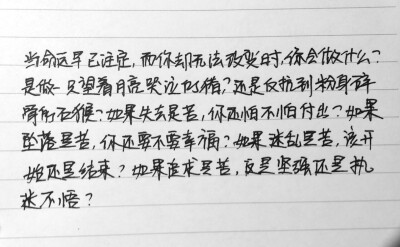 当命运早已注定，而你却无法改变时，你会做什么？
是做一只望着月亮哭泣的猪？还是反抗到粉身碎
骨的石猴？如果失去是苦，你还怕不怕付出？如果
坠落是苦，你还要不要幸福？如果迷乱是苦，该开
始还是结束？如果追求是苦，这是坚强还是执
迷不悟？